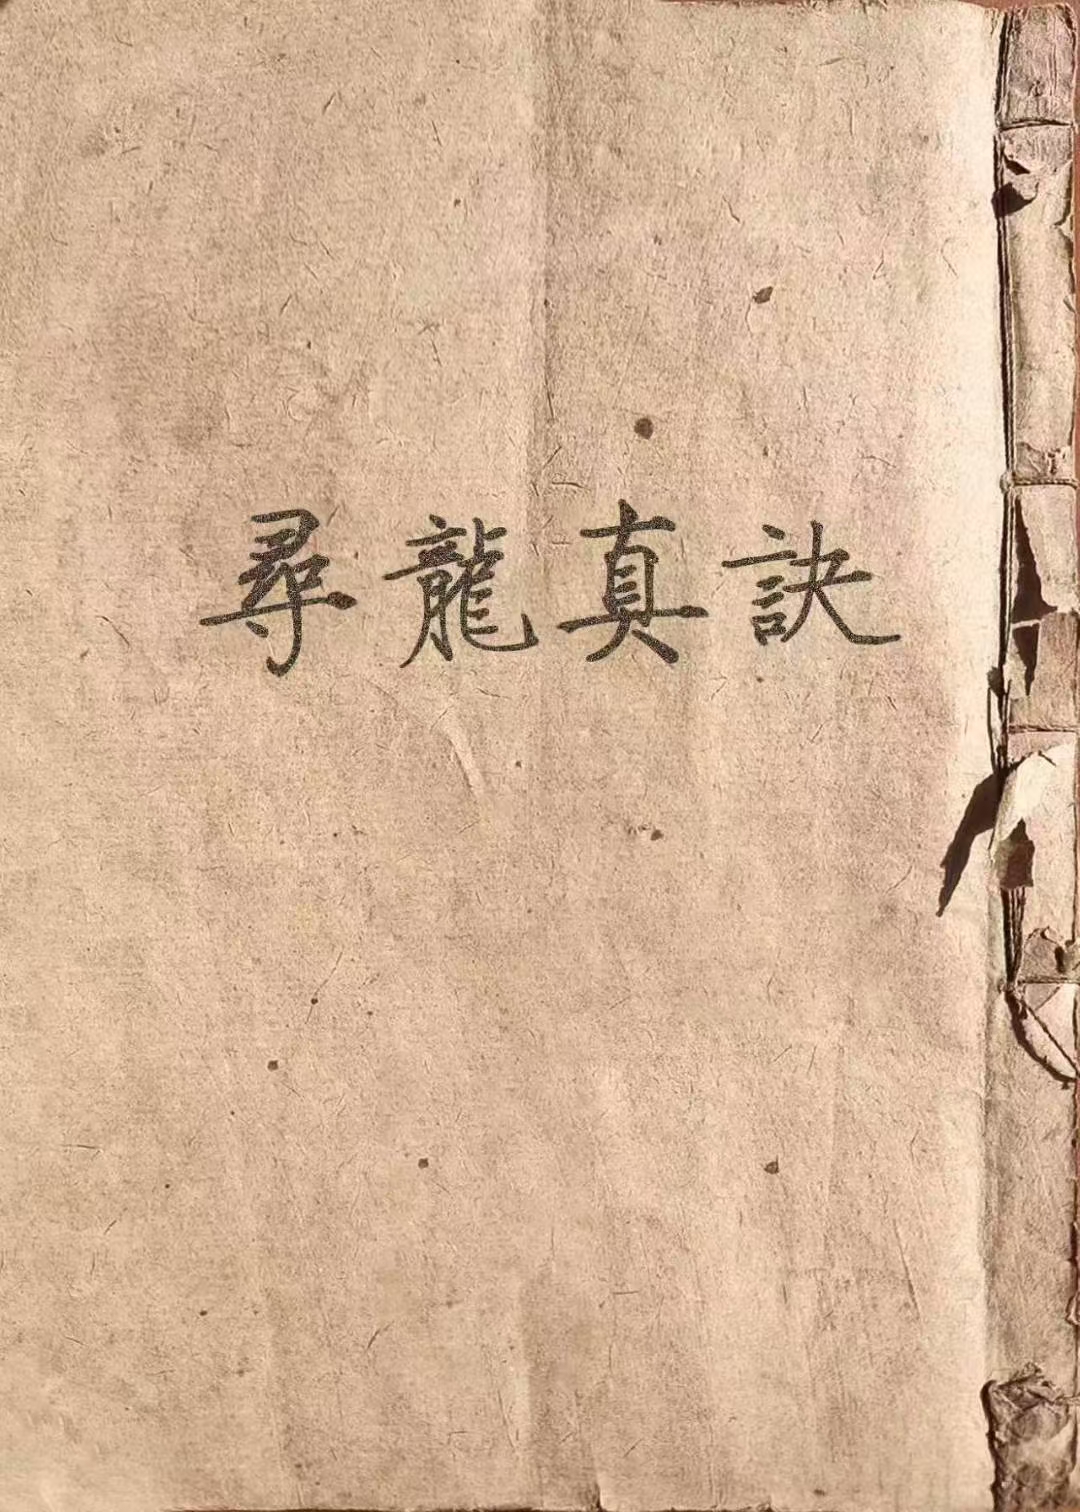 尋龍真訣